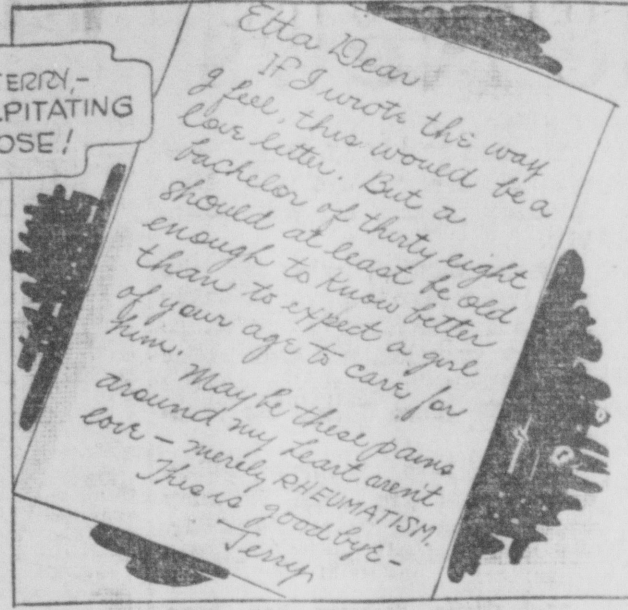 TERRY,-
PITATING
OSE!
Etta Dear
If I wrote the way
I feel, this would be a
love letter. But a
bachelor of thirty eight
should at least be old
enough to know better
than to expect a girl
of your age to care for
him. Maybe these pains
around my heart aren't
love - merely RHEUMATISM.
This is goodbye -
Terry